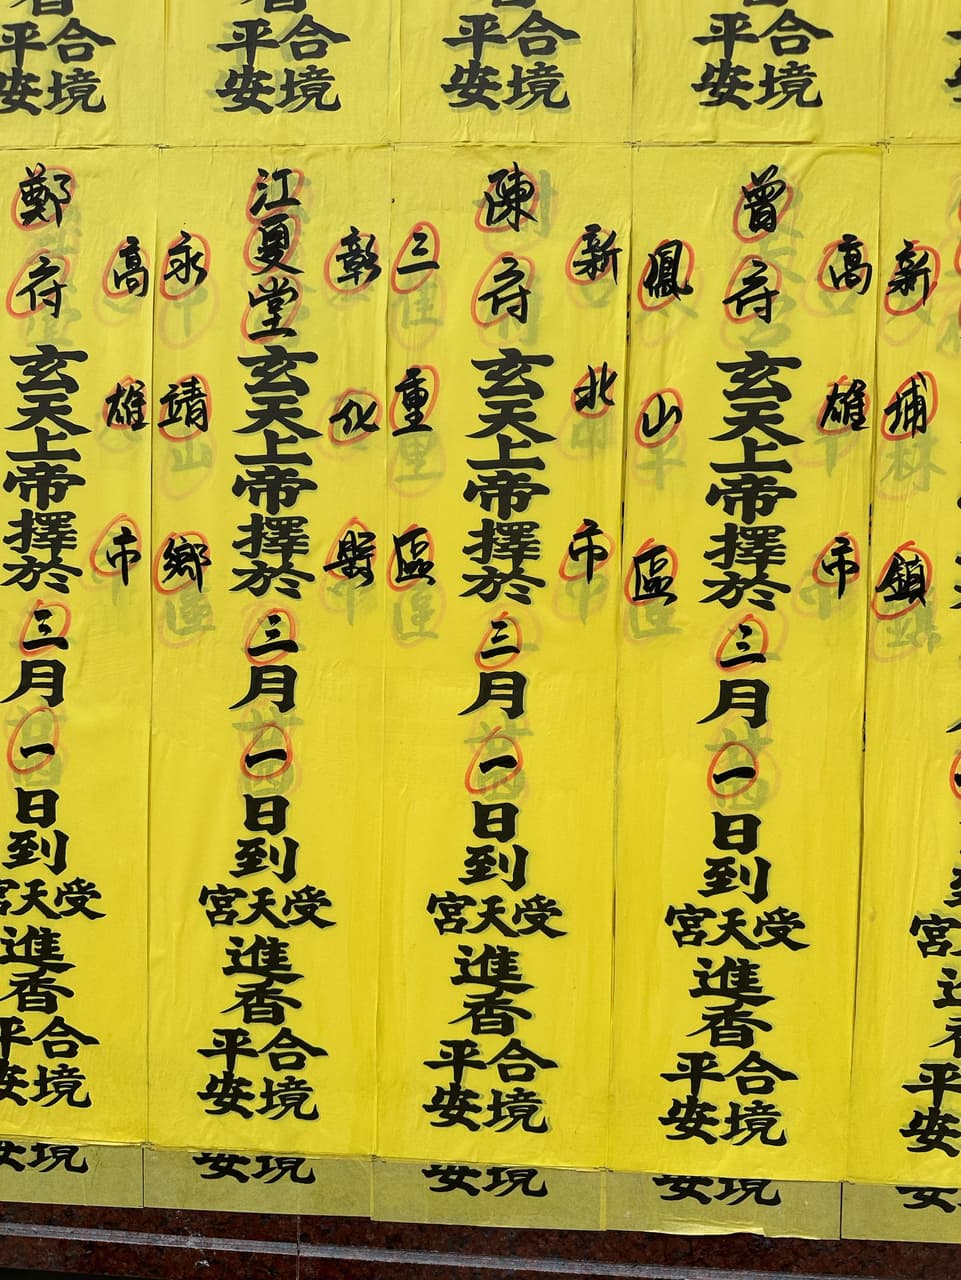 合境
平安
合境
平安
合境
平安
合境
平安
新埔鎮
宮
平安
高雄市
曾府玄天上帝擇於三月一日到
受天宮
進香
合境
平安
鳳山區
新北市
陳府玄天上帝擇於三月一日到
受天宮
進香
合境
平安
三重區
彰化縣
江夏堂玄天上帝擇於三月一日到
受天宮
進香
合境
平安
永靖鄉
高雄市
鄭府玄天上帝擇於三月一日到
受天宮
進香
合境
平安